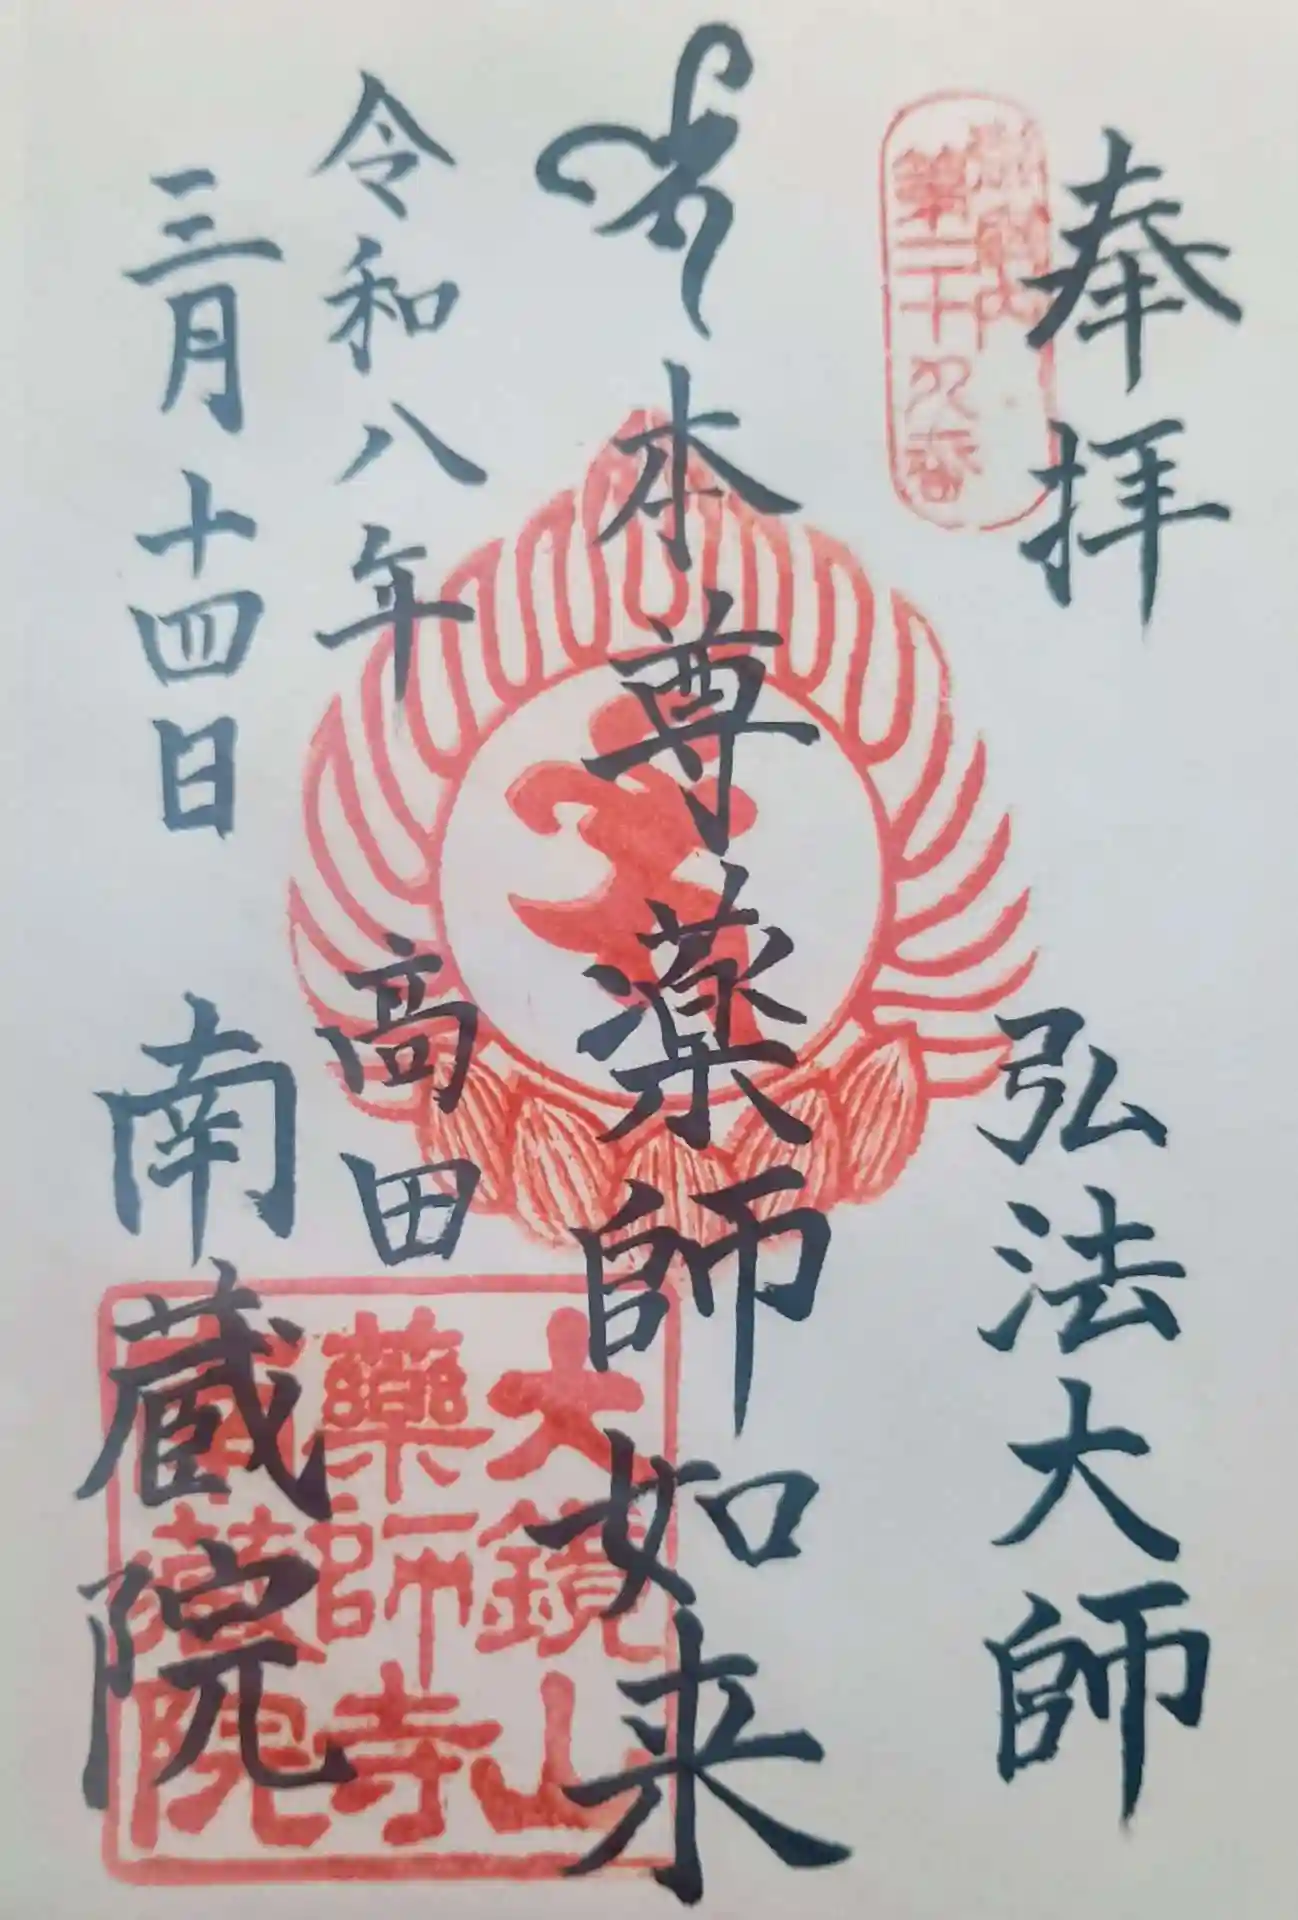 奉拝
弘法大師
第二十九番
本尊薬師如来
令和八年
高田
三月十四日
南蔵院
大鏡山
薬師寺
南蔵院